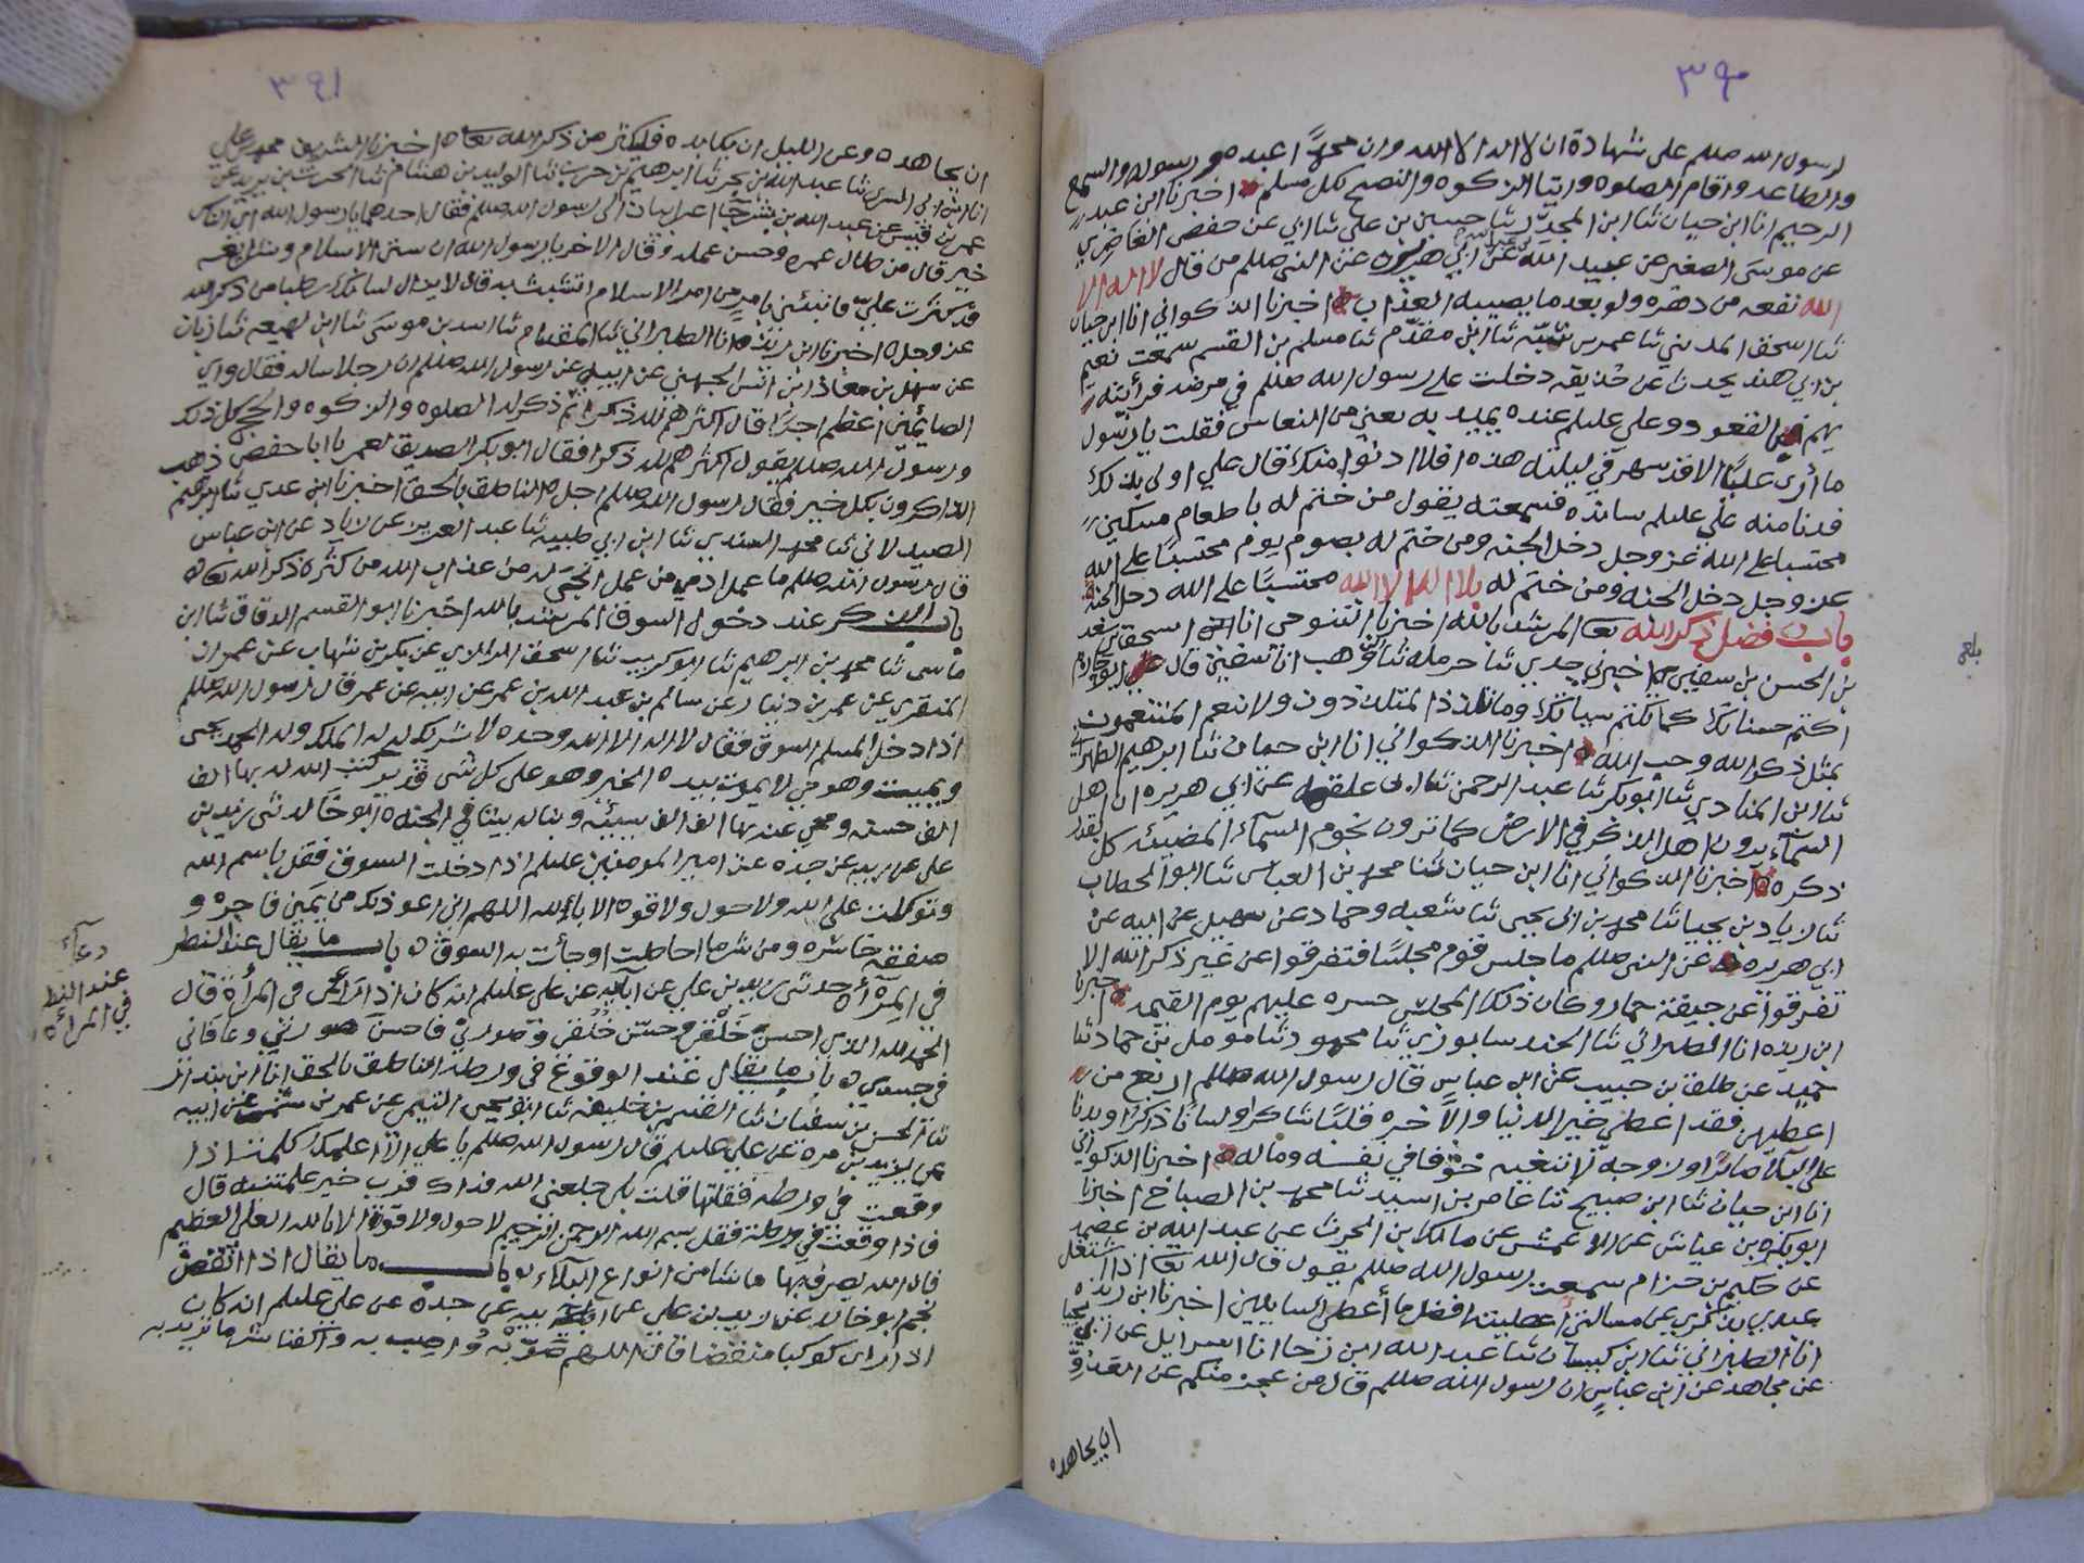 ٣٩٠
رسول الله صللم على شهادة ان لا اله الا الله وان محمدًا عبده ورسوله والسمع
والطاعه واقام الصلوه وايتا الزكوه والنصح لكل مسلم ه اخبرنا ابن عبد
الرحيم انا ابن حيان ثنا ابن المجدر ثنا حسين بن علي ثنا ابي عن حفص الغاضري
عن موسى الصغير عن عبيد الله عن ابي هريره عن النبي صللم من قال لا اله الا
الله نفعه من دهره ولو بعد ما يصيبه العذاب ه اخبرنا الذكواني انا ابن حيان
ثنا اسحق المديني ثنا عمر بن شبّه ثنا ابن مقدّم ثنا مسلم بن القسم سمعت نعيم
بن ابي هند يحدث عن حذيقه دخلت على رسول الله صللم في مرضه فرأيته
يهم القعود وعلي عليلم عنده يميد به يعني من النعاس فقلت يا رسول
ما أرى عليًا الا قد سهر في ليلته هذه افلا ادنوا منك قال علي اولى بذلك
فدنا منه علي عليلم سانده فسمعته يقول من ختم له باطعام مسكين
محتسبا على الله عز وجل دخل الجنه ومن ختم له بصوم يوم محتسبًا على الله
عز وجل دخل الجنه ومن ختم له بلا اله الا الله محتسبًا على الله دخل الجنه
باب فضل ذكر الله تعا المرشد بالله اخبرنا التنوخي انا اسحق بن سعد
بن الحسن بن سفين اخبرني جدي ثنا حرمله ثنا ابن وهب انا سفين قال ابو حازم
اكتم حسناتك كما تكتم سياتك وما تلذذ المتلذذون ولا تنعم المتنعمون
بمثل ذكر الله وحب الله ه اخبرنا الذكواني انا ابن حيان ثنا ابرهيم الطهراني
ثنا ابن المنادي ثنا ابو بكر ثنا عبد الرحمن ثنا ابن علقمه عن ابي هريره ان اهل
السماء يرون اهل الذكر في الارض كما ترون نجوم السماء المضيئه كل بقدر
ذكره ه اخبرنا الذكواني انا ابن حيان ثنا محمد بن العباس ثنا ابو الخطاب
ثنا زياد بن يحيا ثنا محمد بن ابي يحيى ثنا شعبه وحماد عن سهيل عن ابيه عن
ابي هريره عن النبي صللم ما جلس قوم مجلسًا فتفرقوا عن غير ذكر الله الا
تفرقوا عن جيفة حمار وكان ذلك المجلس حسره عليهم يوم القيمه ه اخبرنا
ابن ريذه انا الطبراني ثنا الجندسابوري ثنا محمود ثنا مومل بن حماد ثنا
حميد عن طلق بن حبيب عن ابن عباس قال رسول الله صللم اربع من
اعطيهن فقد اعطي خير الدنيا والآخره قلبًا شاكرا ولسانًا ذاكرًا وبدنا
على البلاء صابرًا وزوجة لا تبغيه خوفا في نفسه وماله ه اخبرنا الذكواني
انا ابن حيان ثنا ابن صبيح ثنا عامر بن اسيد ثنا محمد بن الصباح اخبرنا
ابو بكر بن عياش عن الاعمش عن مالك بن الحرث عن عبد الله بن عصمه
عن حكيم بن حزام سمعت رسول الله صللم يقول قال الله تعا اذا اشتغل
عبدي بذكري عن مسالتي أعطيته افضل ما أعطى السايلين اخبرنا ابن ريذه
انا الطبراني ثنا ابن كيسان ثنا عبد الله ابن رجا انا اسرايل عن ابي يحيا
عن مجاهد عن ابن عباس ان رسول الله صللم قال من عجز منكم عن العدو
ان يجاهده
بلغ
٣٩١
ان يجاهده وعن الليل ان يكابده فليكثر من ذكر الله تعا ه اخبرنا الشريف محمد بن علي
انا ابن ابي السري ثنا عبد الله بن بحر ثنا ابرهيم بن حرب ثنا الوليد بن هشام ثنا الحرث بن يزيد عن
عمر بن قيس عن عبد الله بن بشر جآ اعرابيان الى رسول الله صللم فقال احدهما يا رسول الله اي الناس
خير قال من طال عمره وحسن عمله وقال الاخر يا رسول الله ان سنن الاسلام وشرايعه
قد كثرت عليّ فانبئني بامرٍ من امر الاسلام اتشبث به قال لا يزال لسانك رطبا من ذكر الله
عز وجل ه اخبرنا ابن ريذه انا الطبراني ثنا المقدام ثنا اسد بن موسى ثنا ابن لهيعه ثنا زبان
عن سهل بن معاذ ابن انس الجهني عن ابيه عن رسول الله صللم ان رجلا ساله فقال واي
الصايمين اعظم اجرًا قال اكثرهم لله ذكرا ثم ذكر له الصلوه والزكوه والحج كل ذلك
ورسول الله صللم يقول اكثرهم لله ذكرا فقال ابو بكر الصديق لعمر يا ابا حفص ذهب
الذاكرون بكل خير فقال رسول الله صللم اجل ه الناطق بالحق اخبرنا ابن عدي ثنا ابرهيم
الصيدلاني ثنا محمد السندي ثنا ابن ابي طيبه ثنا عبد العزيز عن زياد عن ابن عباس
قال رسول الله صللم ما عمل ادمي من عمل انجى له من عذاب الله من كثرة ذكر الله تعا ه
باب الذكر عند دخول السوق المرشد بالله اخبرنا ابو القسم الدقاق ثنا ابن
ماسى ثنا محمد بن ابرهيم ثنا ابو كريب ثنا اسحق الرازي عن بكر بن شهاب عن عمران
المنقري عن عمر بن دينار عن سالم بن عبد الله بن عمر عن ابيه عن عمر قال رسول الله صللم
اذا دخل المسلم السوق فقال لا اله الا الله وحده لا شريك له له الملك وله الحمد يحيى
ويميت وهو حي لا يموت بيده الخير وهو على كل شى قدير كتب الله له بها الف
الف حسنه ومحي عنه بها الف الف سيئة وبنا له بيتا في الجنه ه ابو خالد ثنى زيد بن
علي عن ابيه عن جده عن امير المومنين عليلم اذا دخلت السوق فقل باسم الله
وتوكلت على الله ولا حول ولا قوه الا بالله اللهم اني اعوذ بك من يمين فاجره و
صفقة خاسره ومن شر ما احاطت او جأت به السوق ه باب ما يقال عند النظر
في المرآة حدثنى زيد بن علي عن آبايه عن علي عليلم انه كان اذا نظر في المرأة قال
الحمد لله الذي احسن خَلْقي وحسّن خُلُقي وصورني فاحسن صورتي وعافاني
في جسدي ه باب ما يقال عند الوقوع في ورطه الناطق بالحق انا ابن بندار
ثنا الحسن بن سفيان ثنا القسم بن خليفه ثنا ابو يحيى التيمي عن عمر بن شمر عن ابيه
عن يزيد بن مره عن علي عليلم قال رسول الله صللم يا علي الا اعلمك كلمات اذا
وقعت في ورطه فقلتها قلت بلى جعلني الله فداك فرب خير علمتنيه قال
فاذا وقعت في ورطة فقل بسم الله الرحمن الرحيم لا حول ولا قوة الا بالله العلي العظيم
فان الله يصرف بها ما شا من انواع البلاء ه باب ما يقال اذا انقض
نجم ابو خالد عن زيد بن علي عن ابيه عن جده عن علي عليلم انه كان
اذا راى كوكبا منقضا قال اللهم صَوّبه وأصِب به واكفنا شر ما تريد به
دعآء
عند النظر
في المرأه